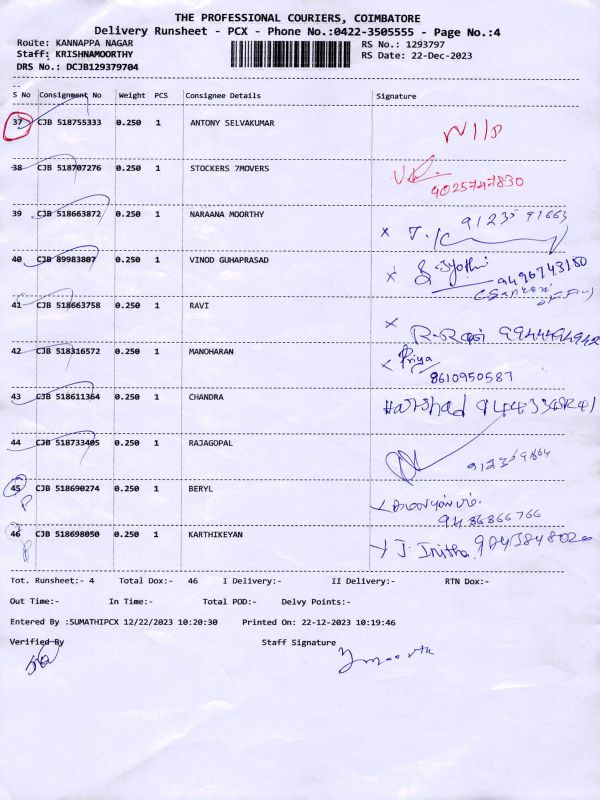 THE PROFESSIONAL COURIERS, COIMBATORE
Delivery Runsheet - PCX - Phone No.:0422-3505555 - Page No.:4
Route: KANNAPPA NAGAR RS No.: 1293797
Staff: KRISHNAMOORTHY RS Date: 22-Dec-2023
DRS No.: DCJB129379704
S No Consignment No Weight PCS Consignee Details Signature
37 CJB 518755333 0.250 1 ANTONY SELVAKUMAR
38 CJB 518707276 0.250 1 STOCKERS 7MOVERS
9025747830
39 CJB 518663872 0.250 1 NARAANA MOORTHY
40 CJB 89983807 0.250 1 VINOD GUHAPRASAD Jyothi
9496743150
41 CJB 518663758 0.250 1 RAVI
R-Ravi 9944494942
42 CJB 518316572 0.250 1 MANOHARAN Priya
8610950587
43 CJB 518611364 0.250 1 CHANDRA Harshad
44 CJB 518733405 0.250 1 RAJAGOPAL
45 CJB 518690274 0.250 1 BERYL
9486366766
46 CJB 518698050 0.250 1 KARTHIKEYAN J.
Tot. Runsheet:- 4 Total Dox:- 46 I Delivery:- II Delivery:- RTN Dox:-
Out Time:- In Time:- Total POD:- Delvy Points:-
Entered By :SUMATHIPCX 12/22/2023 10:20:30 Printed On: 22-12-2023 10:19:46
Verified By Staff Signature